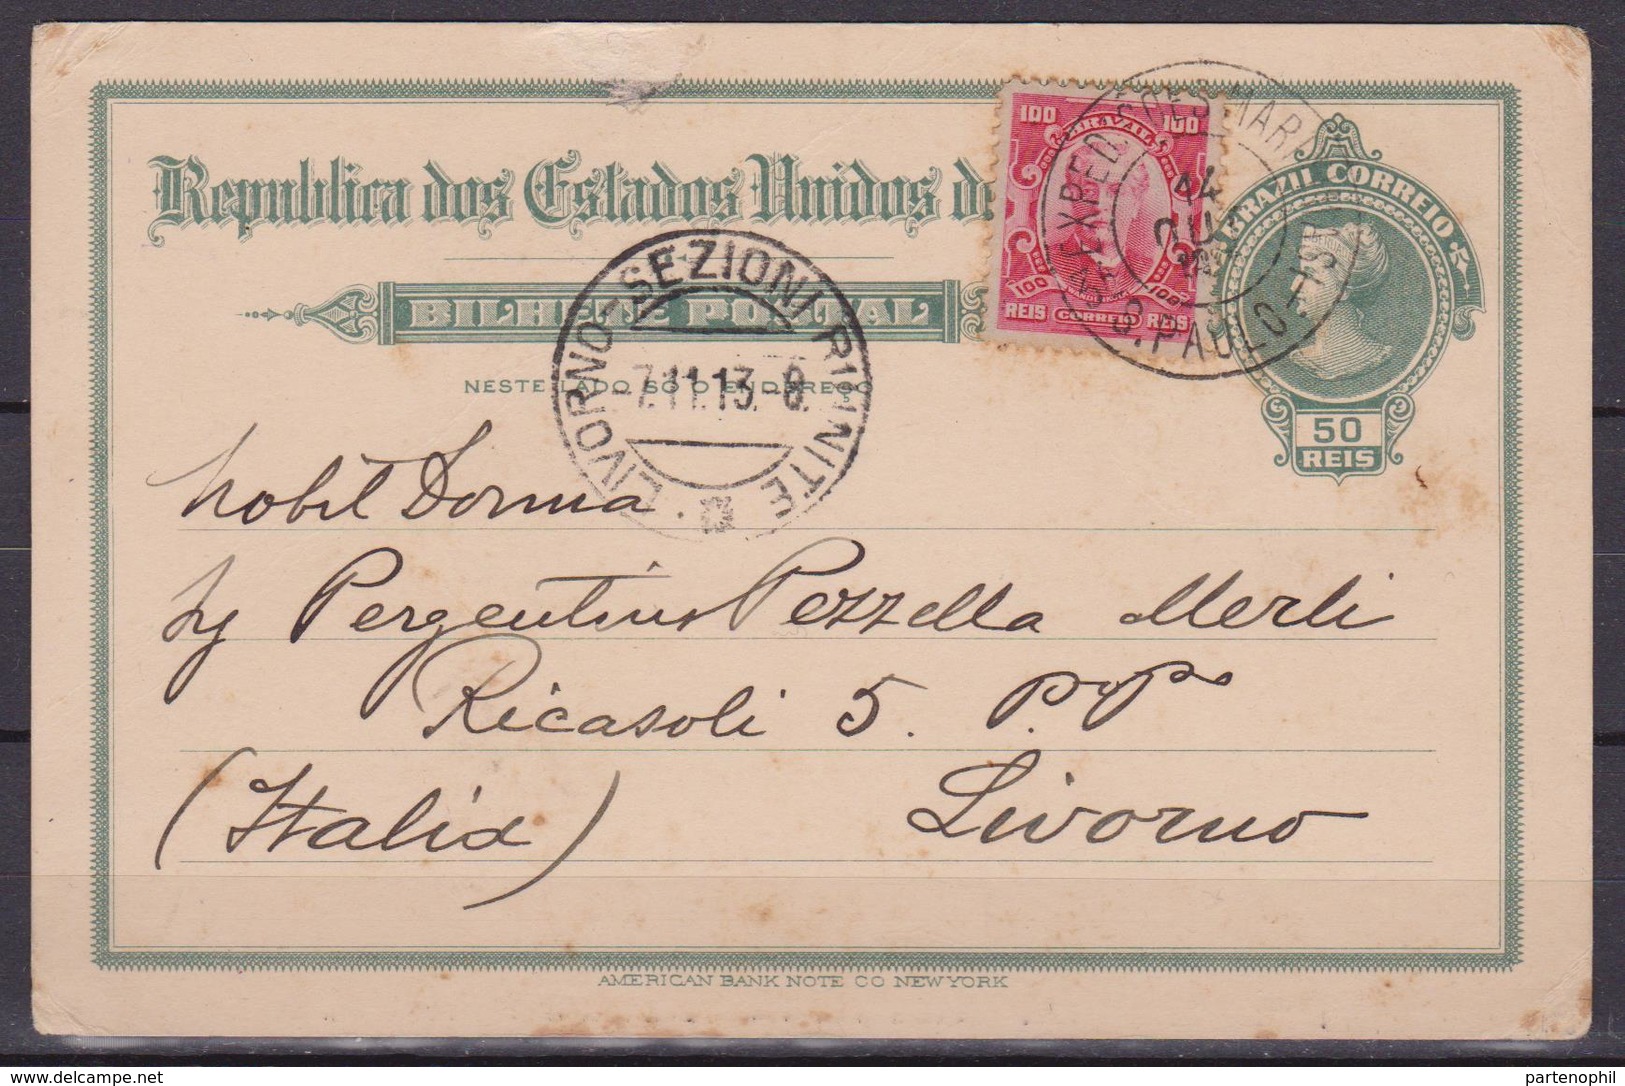 Republica dos Estados Unidos d
BILHETE POSTAL
NESTE LADO SÓ O ENDEREÇO
100 100
100 100
REIS CORREIO REIS
EXPED
S. PAULO
14
BRAZIL CORREIO
50
REIS
LIVORNO-SEZIONI RIUNITE
7.11.13. 8
LIVORNO
Nobil Donna
Pergentina Pezzella Merli
Ricasoli 5. P.P°
(Italia) Livorno
AMERICAN BANK NOTE CO NEW YORK
delcampe.net
partenophil